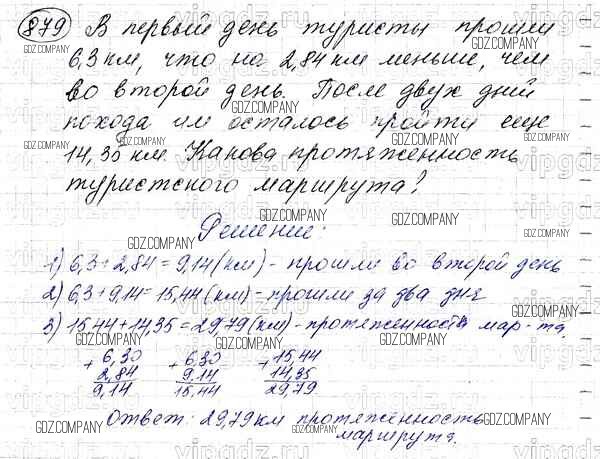 879 В первый день туристы прошли
6,3 км, что на 2,84 км меньше, чем
во второй день. После двух дней
похода им осталось пройти еще
14,35 км. Какова протяженность
туристского маршрута?
Решение:
1) 6,3 + 2,84 = 9,14 (км) - прошли во второй день
2) 6,3 + 9,14 = 15,44 (км) - прошли за два дня
3) 15,44 + 14,35 = 29,79 (км) - протяженность мар-та.
+ 6,30 + 6,30 + 15,44
2,84 9,14 14,35
9,14 15,44 29,79
Ответ: 29,79 км протяженность
маршрута.
GDZ.COMPANY
vipgdz.ru